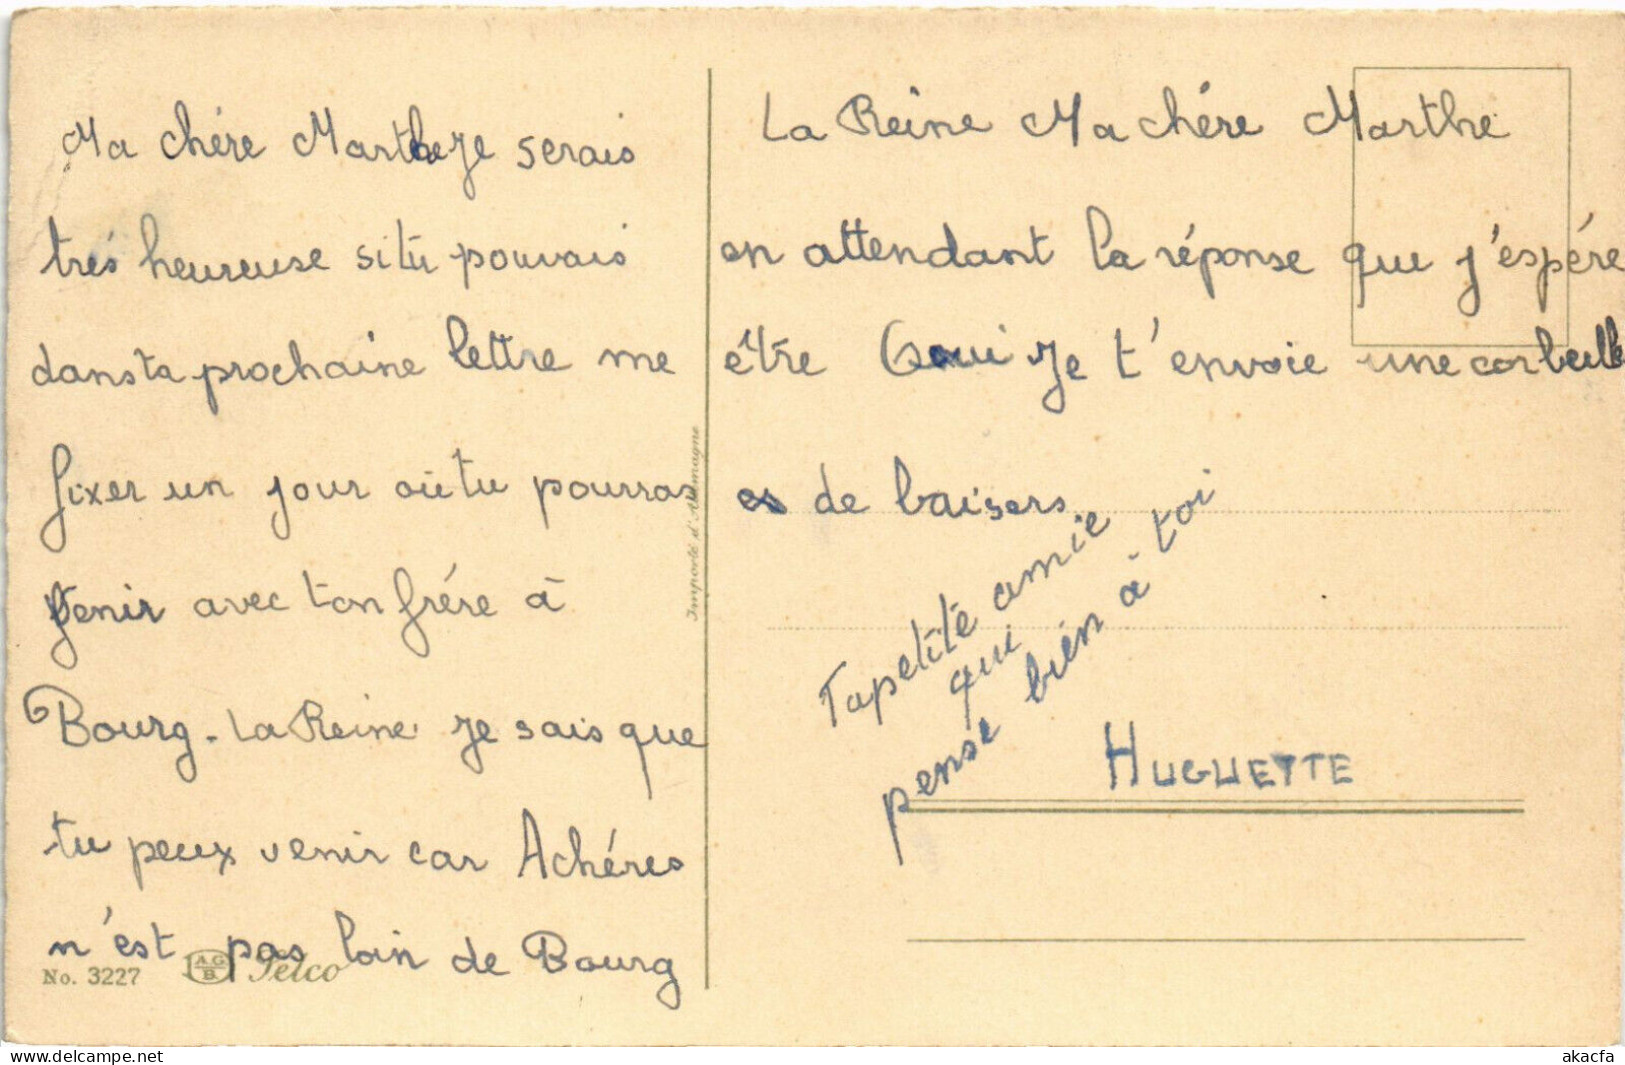 Ma chére Marthe Je serais
trés heureuse si tu pouvais
dans ta prochaine lettre me
fixer un jour où tu pourras
venir avec ton frére à
Bourg-La Reine Je sais que
tu peux venir car Achéres
n'est pas loin de Bourg
La Reine Ma chére Marthe
en attendant la réponse que j'espére
être oui Je t'envoie une corbeille
de baisers
Ta petite amie
qui
pense bien à toi
HUGUETTE
Importé d'Allemagne
No. 3227 A.G. B. Pelco
akacfa